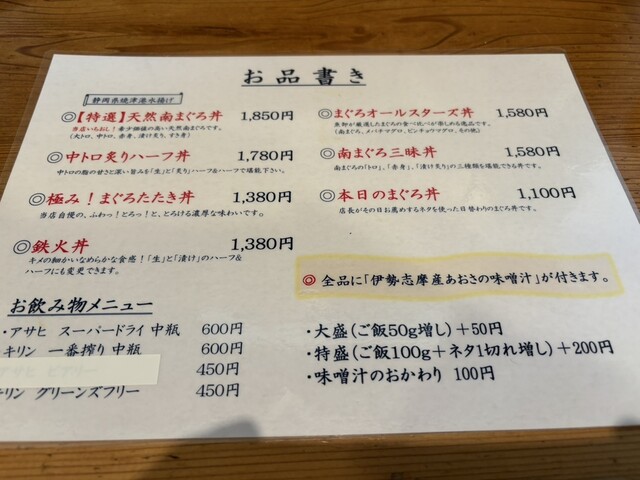 お品書き
静岡県焼津港水揚げ
◎【特選】天然南まぐろ丼 1,850円
当店いちおし！希少価値の高い天然南まぐろです。
(大トロ、中トロ、赤身、漬け炙り、すき身)
◎中トロ炙りハーフ丼 1,780円
中トロの脂の甘さと深い旨みを「生」と「炙り」ハーフ&ハーフで堪能下さい。
◎極み！まぐろたたき丼 1,380円
当店自慢の、ふわっ！とろっ！と、とろける濃厚な味わいです。
◎鉄火丼 1,380円
キメの細かいなめらかな食感！「生」と「漬け」のハーフ&
ハーフにも変更できます。
◎まぐろオールスターズ丼 1,580円
(南まぐろ、メバチマグロ、ビンチョウマグロ、その他)
◎南まぐろ三昧丼 1,580円
南まぐろの「トロ」、「赤身」、「漬け炙り」の三種類を堪能できる丼です。
◎本日のまぐろ丼 1,100円
店長がその日お薦めするネタを使った日替わりのまぐろ丼です。
◎ 全品に「伊勢志摩産あおさの味噌汁」が付きます。
お飲み物メニュー
・アサヒ スーパードライ 中瓶 600円
キリン 一番搾り 中瓶 600円
450円
キリン グリーンズフリー 450円
・大盛(ご飯50g増し)＋50円
・特盛(ご飯100g＋ネタ1切れ増し)＋200円
・味噌汁のおかわり 100円